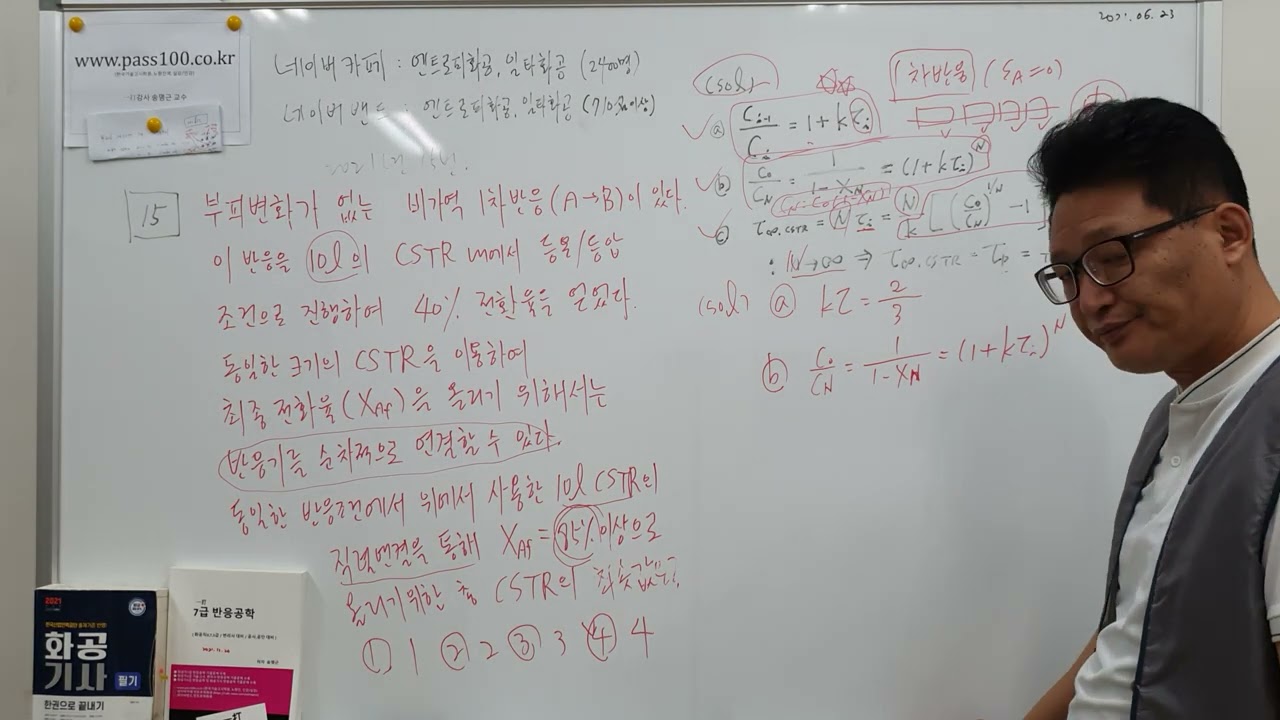 2021.06.23
www.pass100.co.kr
네이버 카페 : 엔트로피화공, 일타화공 (2400명)
네이버 밴드 : 엔트로피화공, 일타화공
15
부피변화가 없는 비가역 1차반응(A→B)이 있다.
이 반응을 10l의 CSTR 내에서 등온/등압
조건으로 진행하여 40% 전환율을 얻었다.
동일한 크기의 CSTR을 이용하여
최종전화율(XAf)을 올리기 위해서는
반응기를 순차적으로 연결할 수 있다.
동일한 반응조건에서 위에서 사용한 10l CSTR의
직렬연결을 통해 XAf = 85% 이상으로
올리기위한 총 CSTR의 최솟값은?
① 1 ② 2 ③ 3 ④ 4
(sol) 1차반응 (εA=0)
ⓐ Ci-1/Ci = 1 + kτi
ⓑ C0/CN = 1/(1-XN) = (1+kτi)^N
CN=C0(1-XN)
ⓒ τ∞,CSTR = Nτi = N/k [(C0/CN)^1/N -1
: N→∞ ⇒ τ∞,CSTR = τp =
(sol) ⓐ kτ = 2/3
ⓑ C0/CN = 1/(1-XN) = (1+kτi)^N
2021
화공
기사
필기
한권으로 끝내기
7급 반응공학